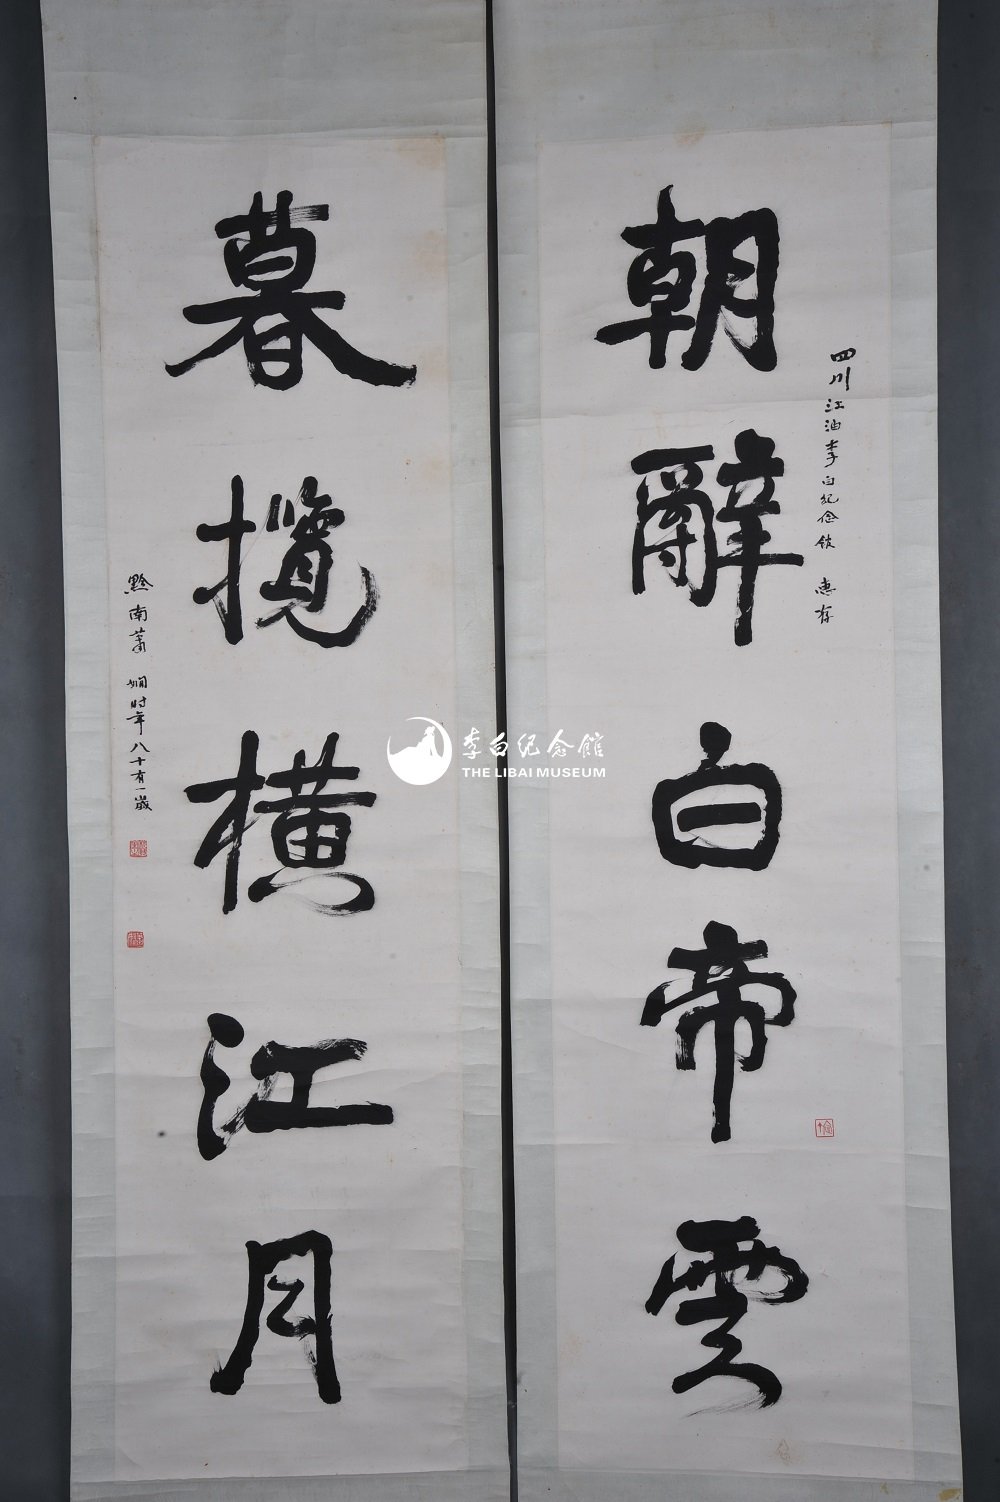 朝辭白帝雲
四川江油李白紀念館 惠存
暮攬橫江月
黔南蕭嫻时年八十有一歲
李白纪念館
THE LIBAI MUSEUM